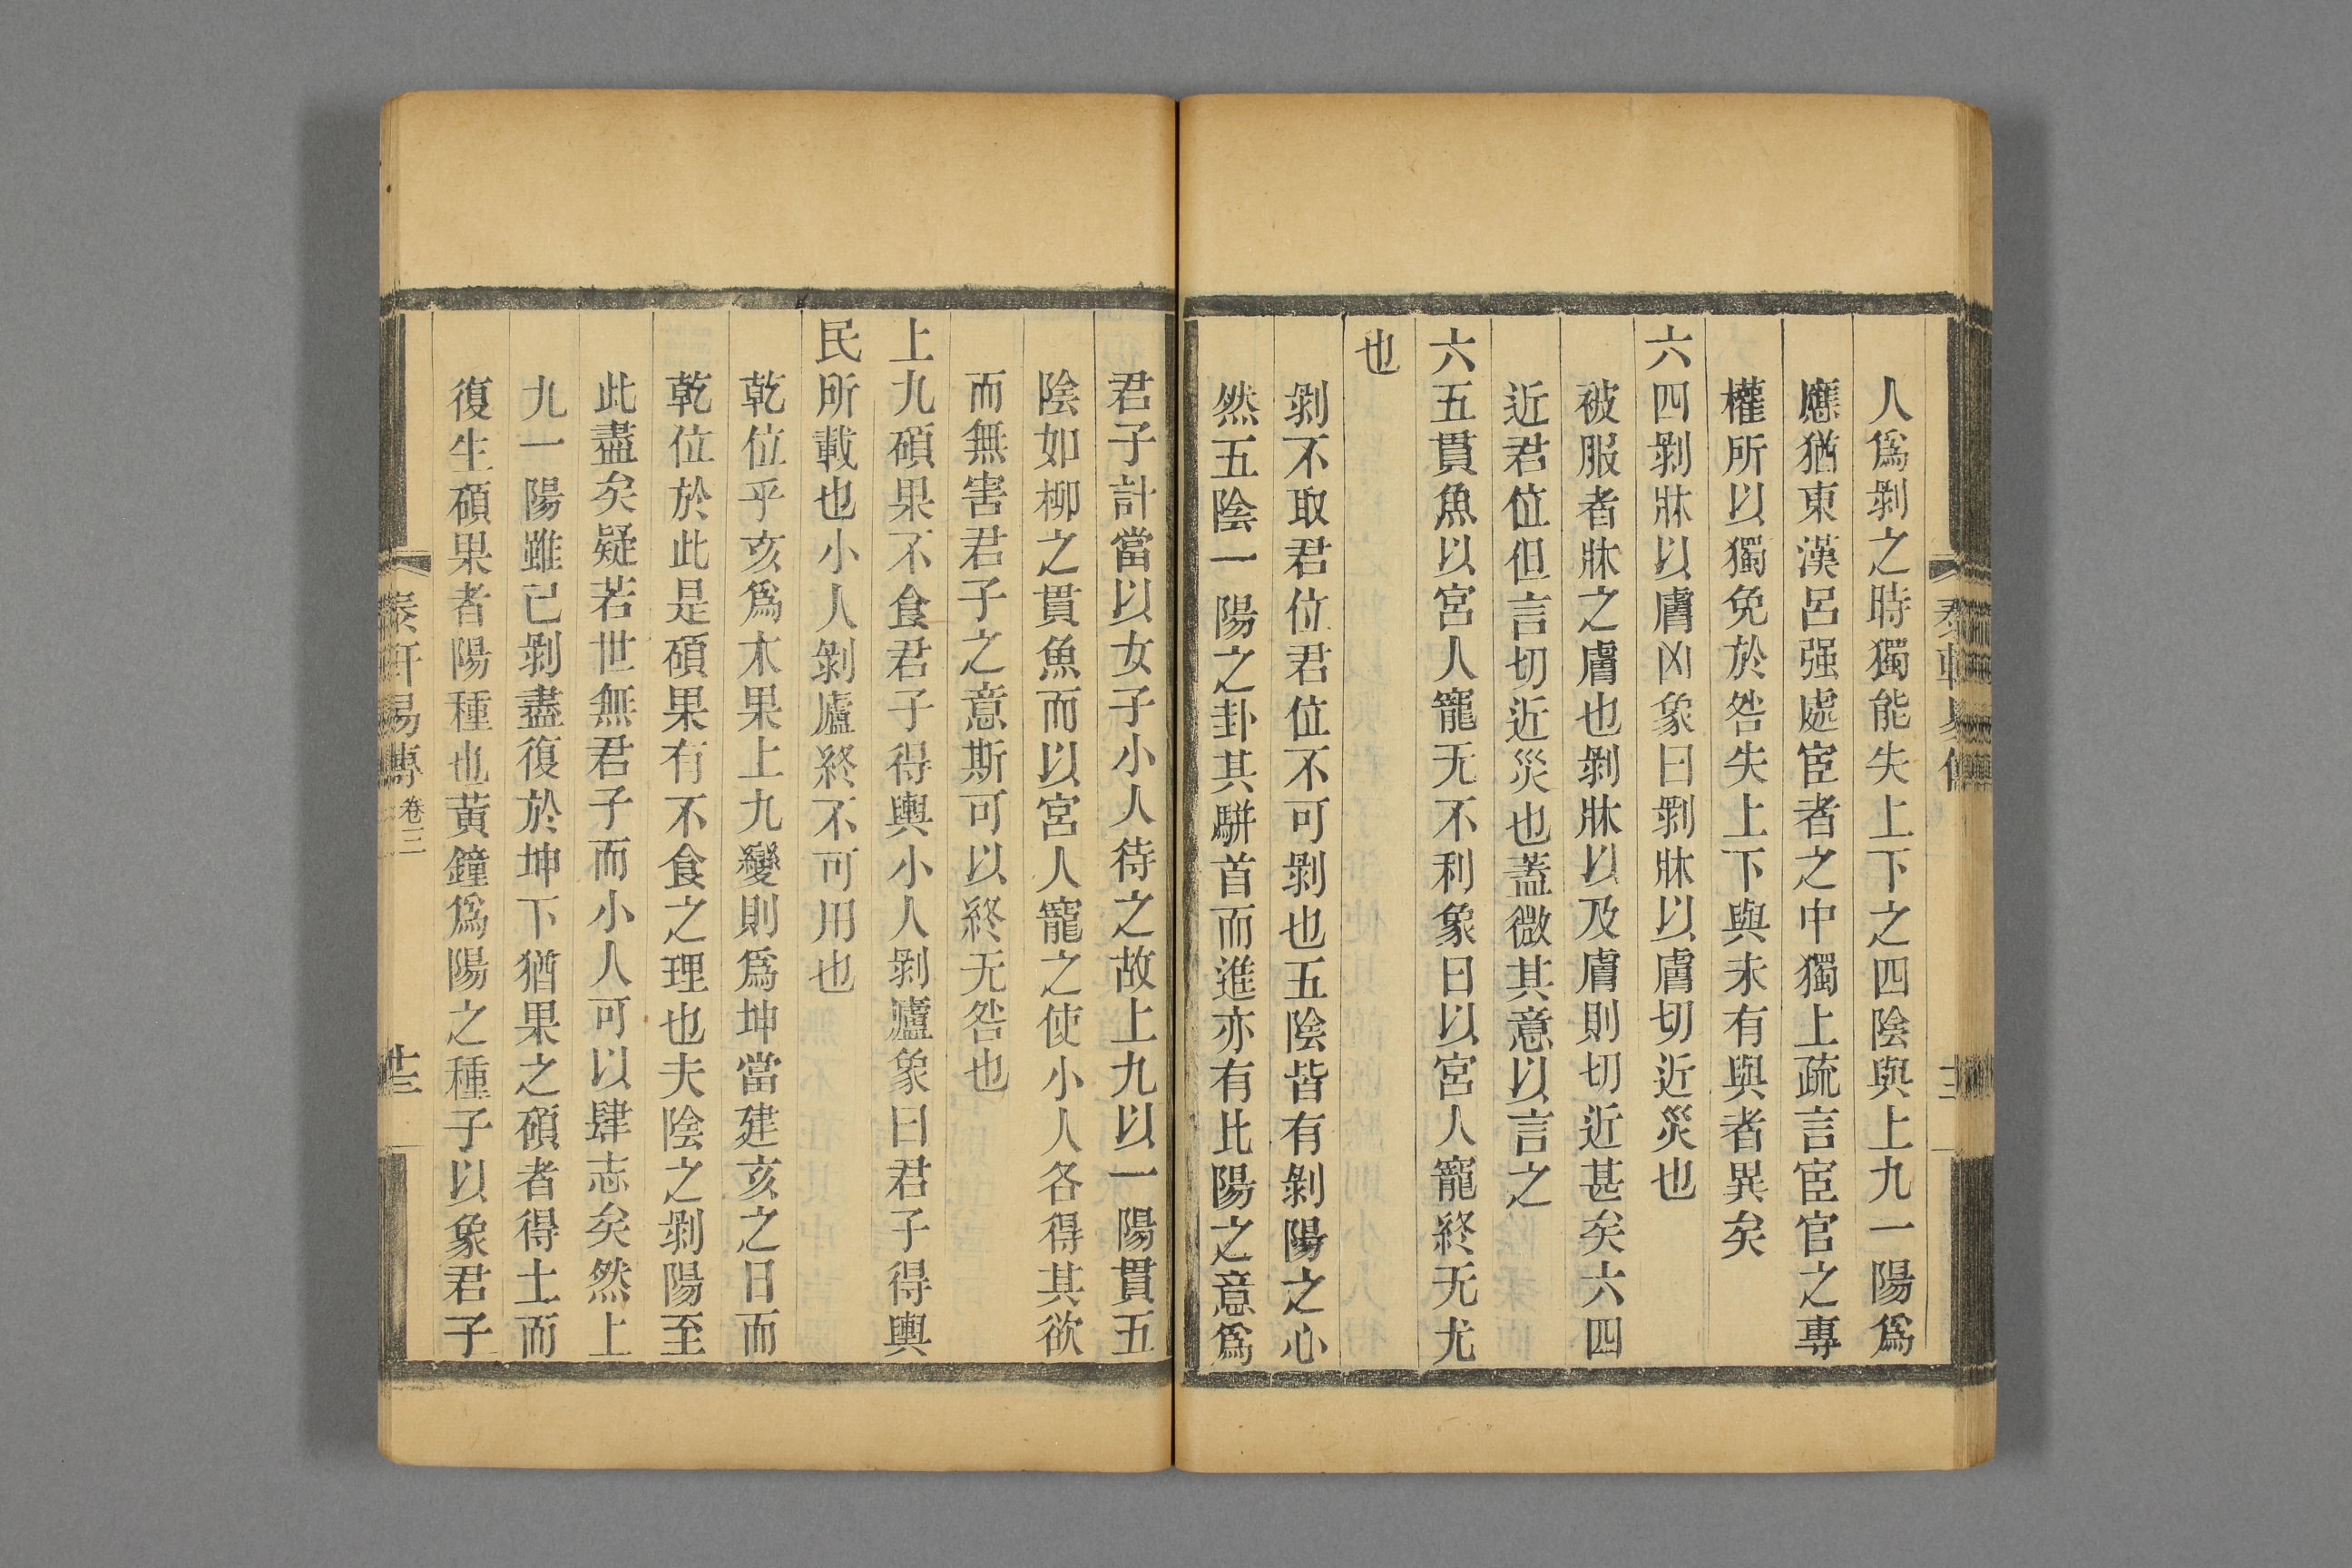 人爲剝之時獨能失上下之四陰與上九一陽爲
應猶東漢呂强處宦者之中獨上疏言宦官之專
權所以獨免於咎失上下與未有與者異矣
六四剝牀以膚凶象曰剝牀以膚切近災也
被服者牀之膚也剝牀以及膚則切近甚矣六四
近君位但言切近災也蓋微其意以言之
六五貫魚以宮人寵无不利象曰以宮人寵終无尤
也
剝不取君位君位不可剝也五陰皆有剝陽之心
然五陰一陽之卦其駢首而進亦有比陽之意爲
君子計當以女子小人待之故上九以一陽貫五
陰如柳之貫魚而以宮人寵之使小人各得其欲
而無害君子之意斯可以終无咎也
上九碩果不食君子得輿小人剝廬象曰君子得輿
民所載也小人剝廬終不可用也
乾位乎亥爲木果上九變則爲坤當建亥之日而
乾位於此是碩果有不食之理也夫陰之剝陽至
此盡矣疑若世無君子而小人可以肆志矣然上
九一陽雖已剝盡復於坤下猶果之碩者得土而
復生碩果者陽種也黃鐘爲陽之種子以象君子
易傳 卷三